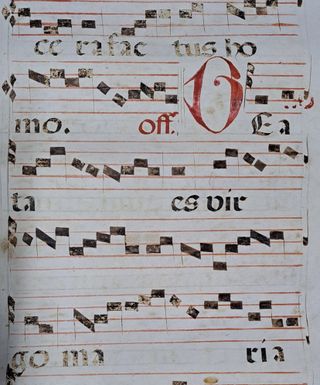 ce ra fac tus ho
mo. off. B Ea
ta es vir
go ma ria